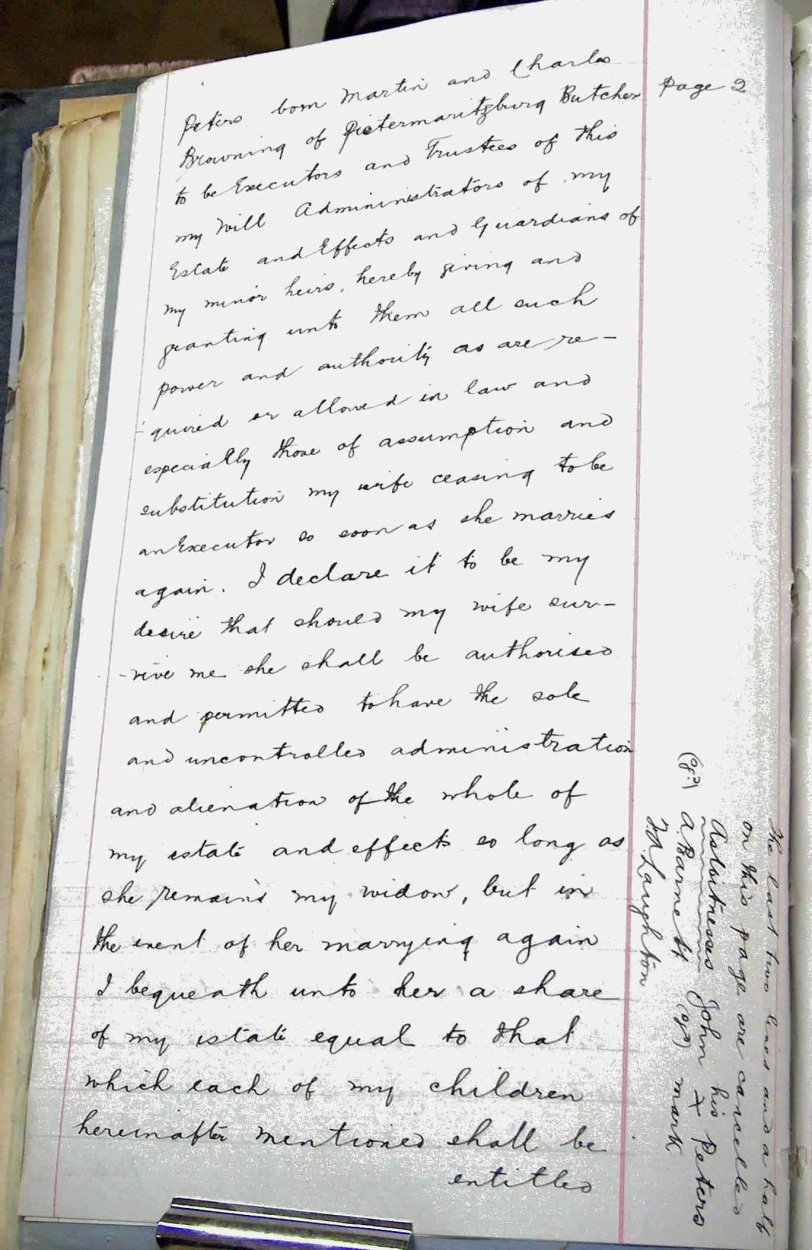 Page 2
Peters born Martin and Charles
Browning of Pietermaritzburg Butcher
to be Executors and Trustees of this
my Will Admininistrators of my
Estate and Effects and Guardians of
my minor heirs, hereby giving and
granting unto them all such
power and authority as are re-
quired or allowed in law and
especially those of assumption and
substitution my wife ceasing to be
an Executor so soon as she marries
again. I declare it to be my
desire that should my wife sur-
-vive me she shall be authorised
and permitted to have the sole
and uncontrolled administration
and alienation of the whole of
my estate and effects so long as
she remains my widow, but in
the event of her marrying again
I bequeath unto her a share
of my estate equal to that
which each of my children
hereinafter mentioned shall be
entitled
The last two lines and a half
on this page are cancelled
As witnesses John his x mark Peters
A Barnett
Laughton